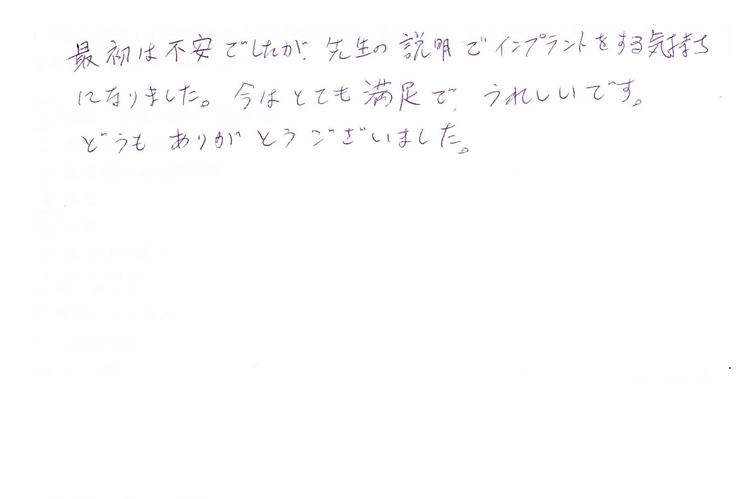 最初は不安でしたが、先生の説明でインプラントをする気持ち
になりました。今はとても満足で、うれしいです。
どうもありがとうございました。